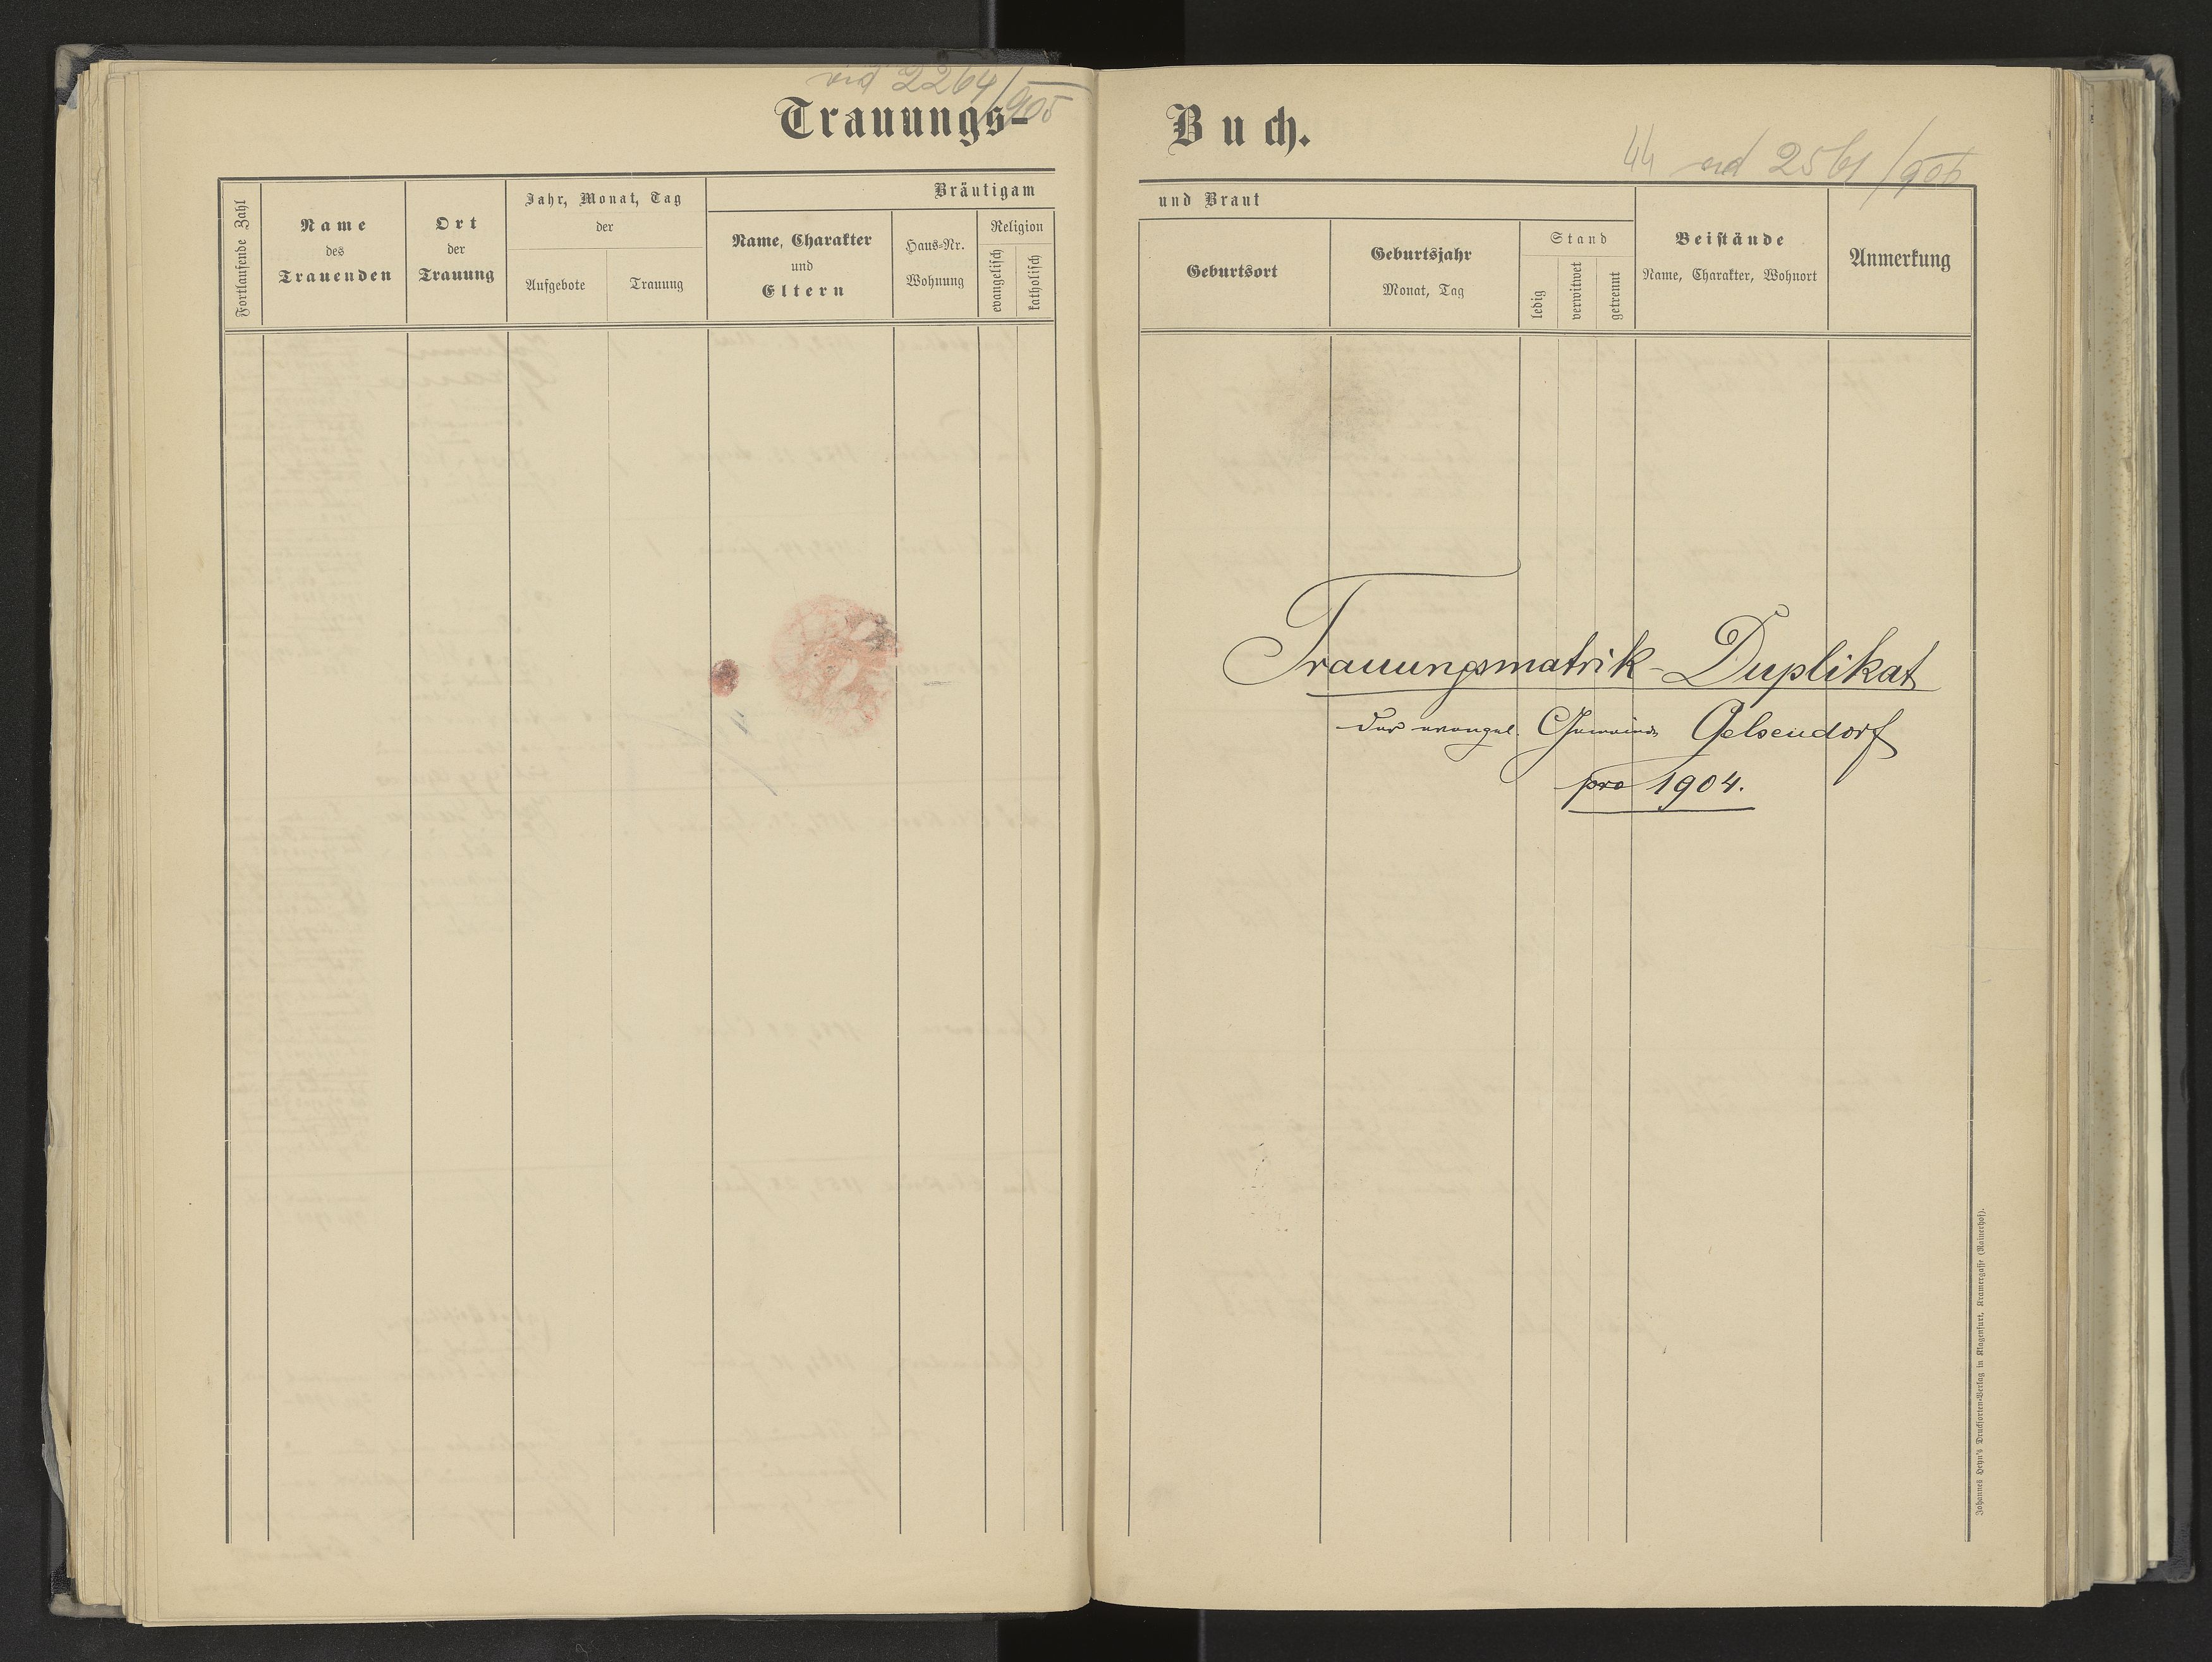 ad 2264/905
Trauungs-
Fortlaufende Zahl
Name
des
Trauenden
Ort
der
Trauung
Jahr, Monat, Tag
der
Aufgebote
Trauung
Bräutigam
Name, Charakter
und
Eltern
Haus-Nr.
Wohnung
Religion
evangelisch
katholisch
Buch.
44 ad 2561/906
und Braut
Geburtsort
Geburtsjahr
Monat, Tag
Stand
ledig
verwitwet
getrennt
Beistände
Name, Charakter, Wohnort
Anmerkung
Trauungsmatrik-Duplikat
der evangel. Gemeinde Gelsendorf
pro 1904.
Johannes Heyn's Drucksorten-Verlag in Klagenfurt, Kramergasse (Rainerhof).